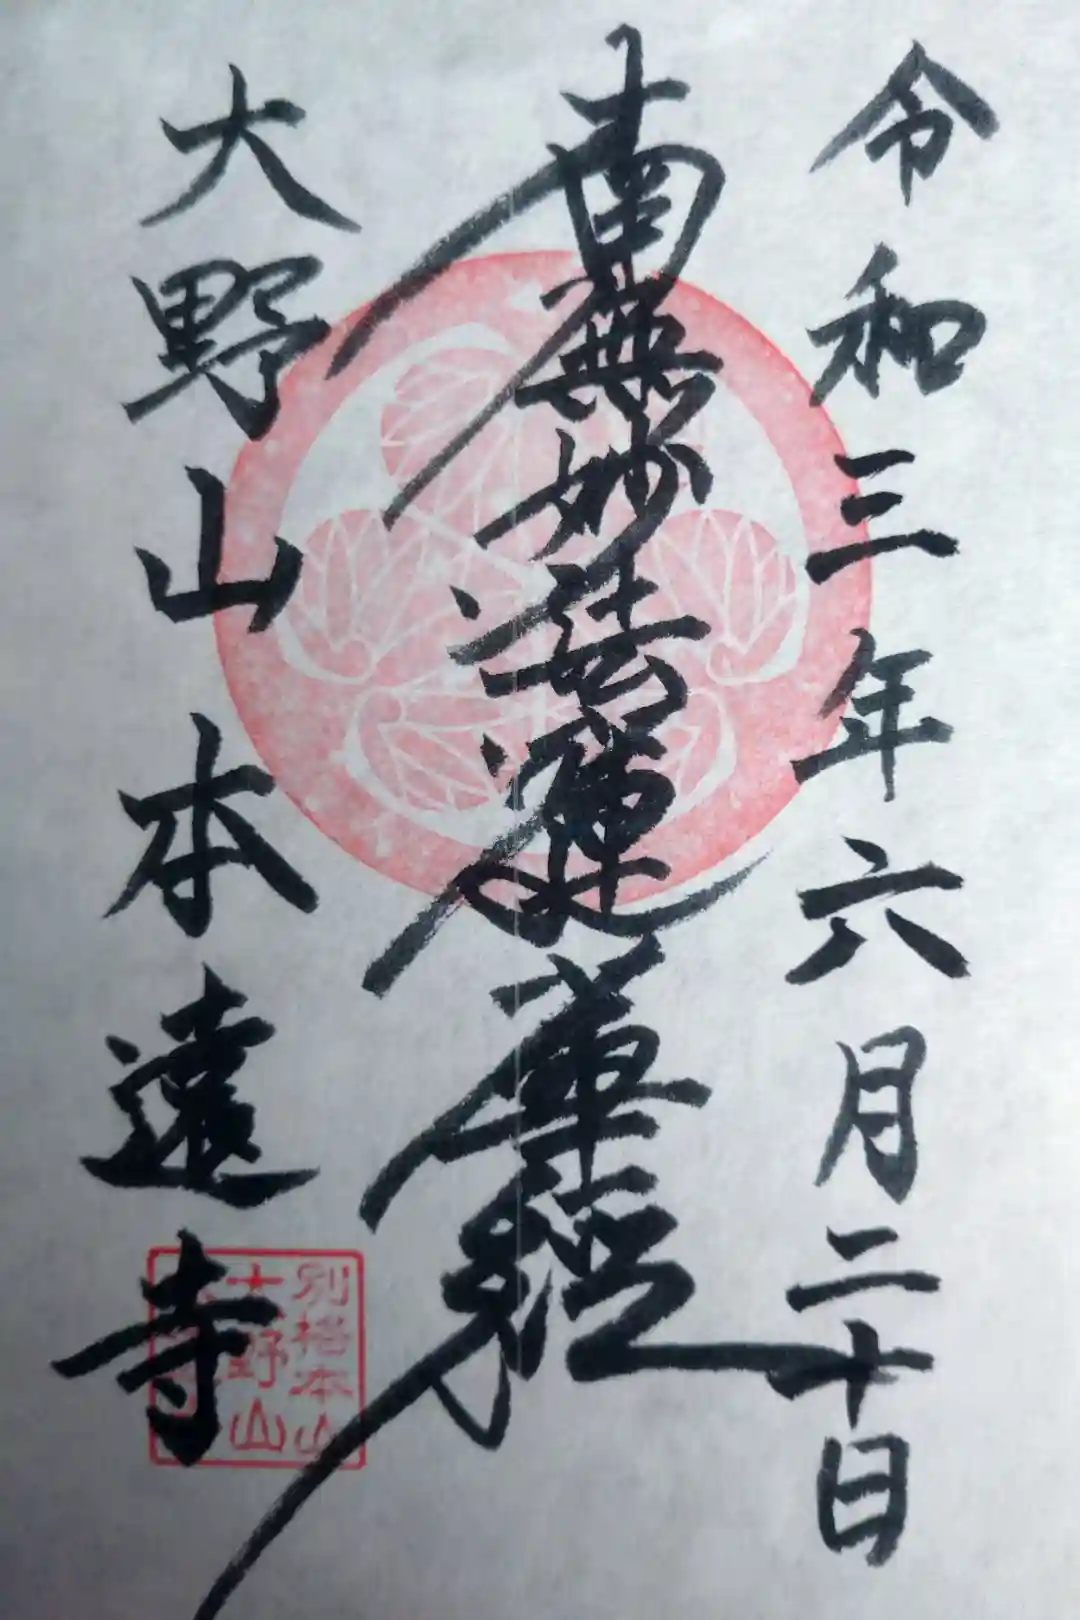 令和三年六月二十日
南無妙法蓮華経
大野山本遠寺
別格本山
大野山